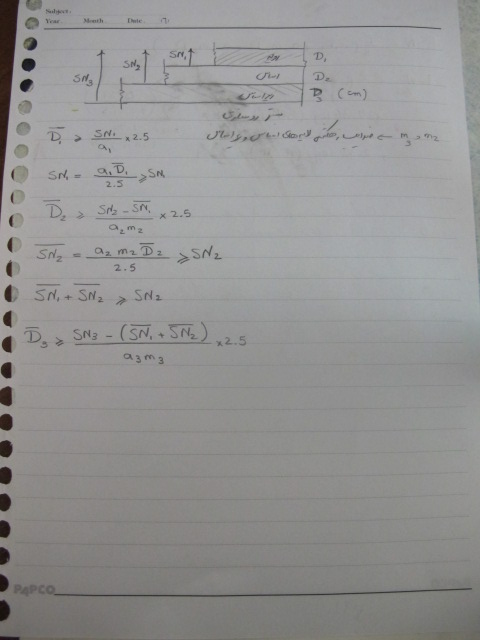 Subject.
Year. Month. Date. ( )
SN₃ SN₂ SN₁ D₁
اساس D₂
زیراساس D₃ (cm)
m₂ , m₃ ضرایب زهکشی لایه‌های اساس و زیراساس
D̅₁ ≥ SN₁/a₁ × 2.5
SN₁ = a₁D̅₁/2.5 ≥ SN₁
D̅₂ ≥ (SN₂ - S̅N̅₁)/(a₂m₂) × 2.5
S̅N̅₂ = a₂ m₂ D̅₂/2.5 ≥ SN₂
S̅N̅₁ + S̅N̅₂ ≥ SN₂
D̅₃ ≥ (SN₃ - (S̅N̅₁ + S̅N̅₂))/(a₃m₃) × 2.5
PAPCO